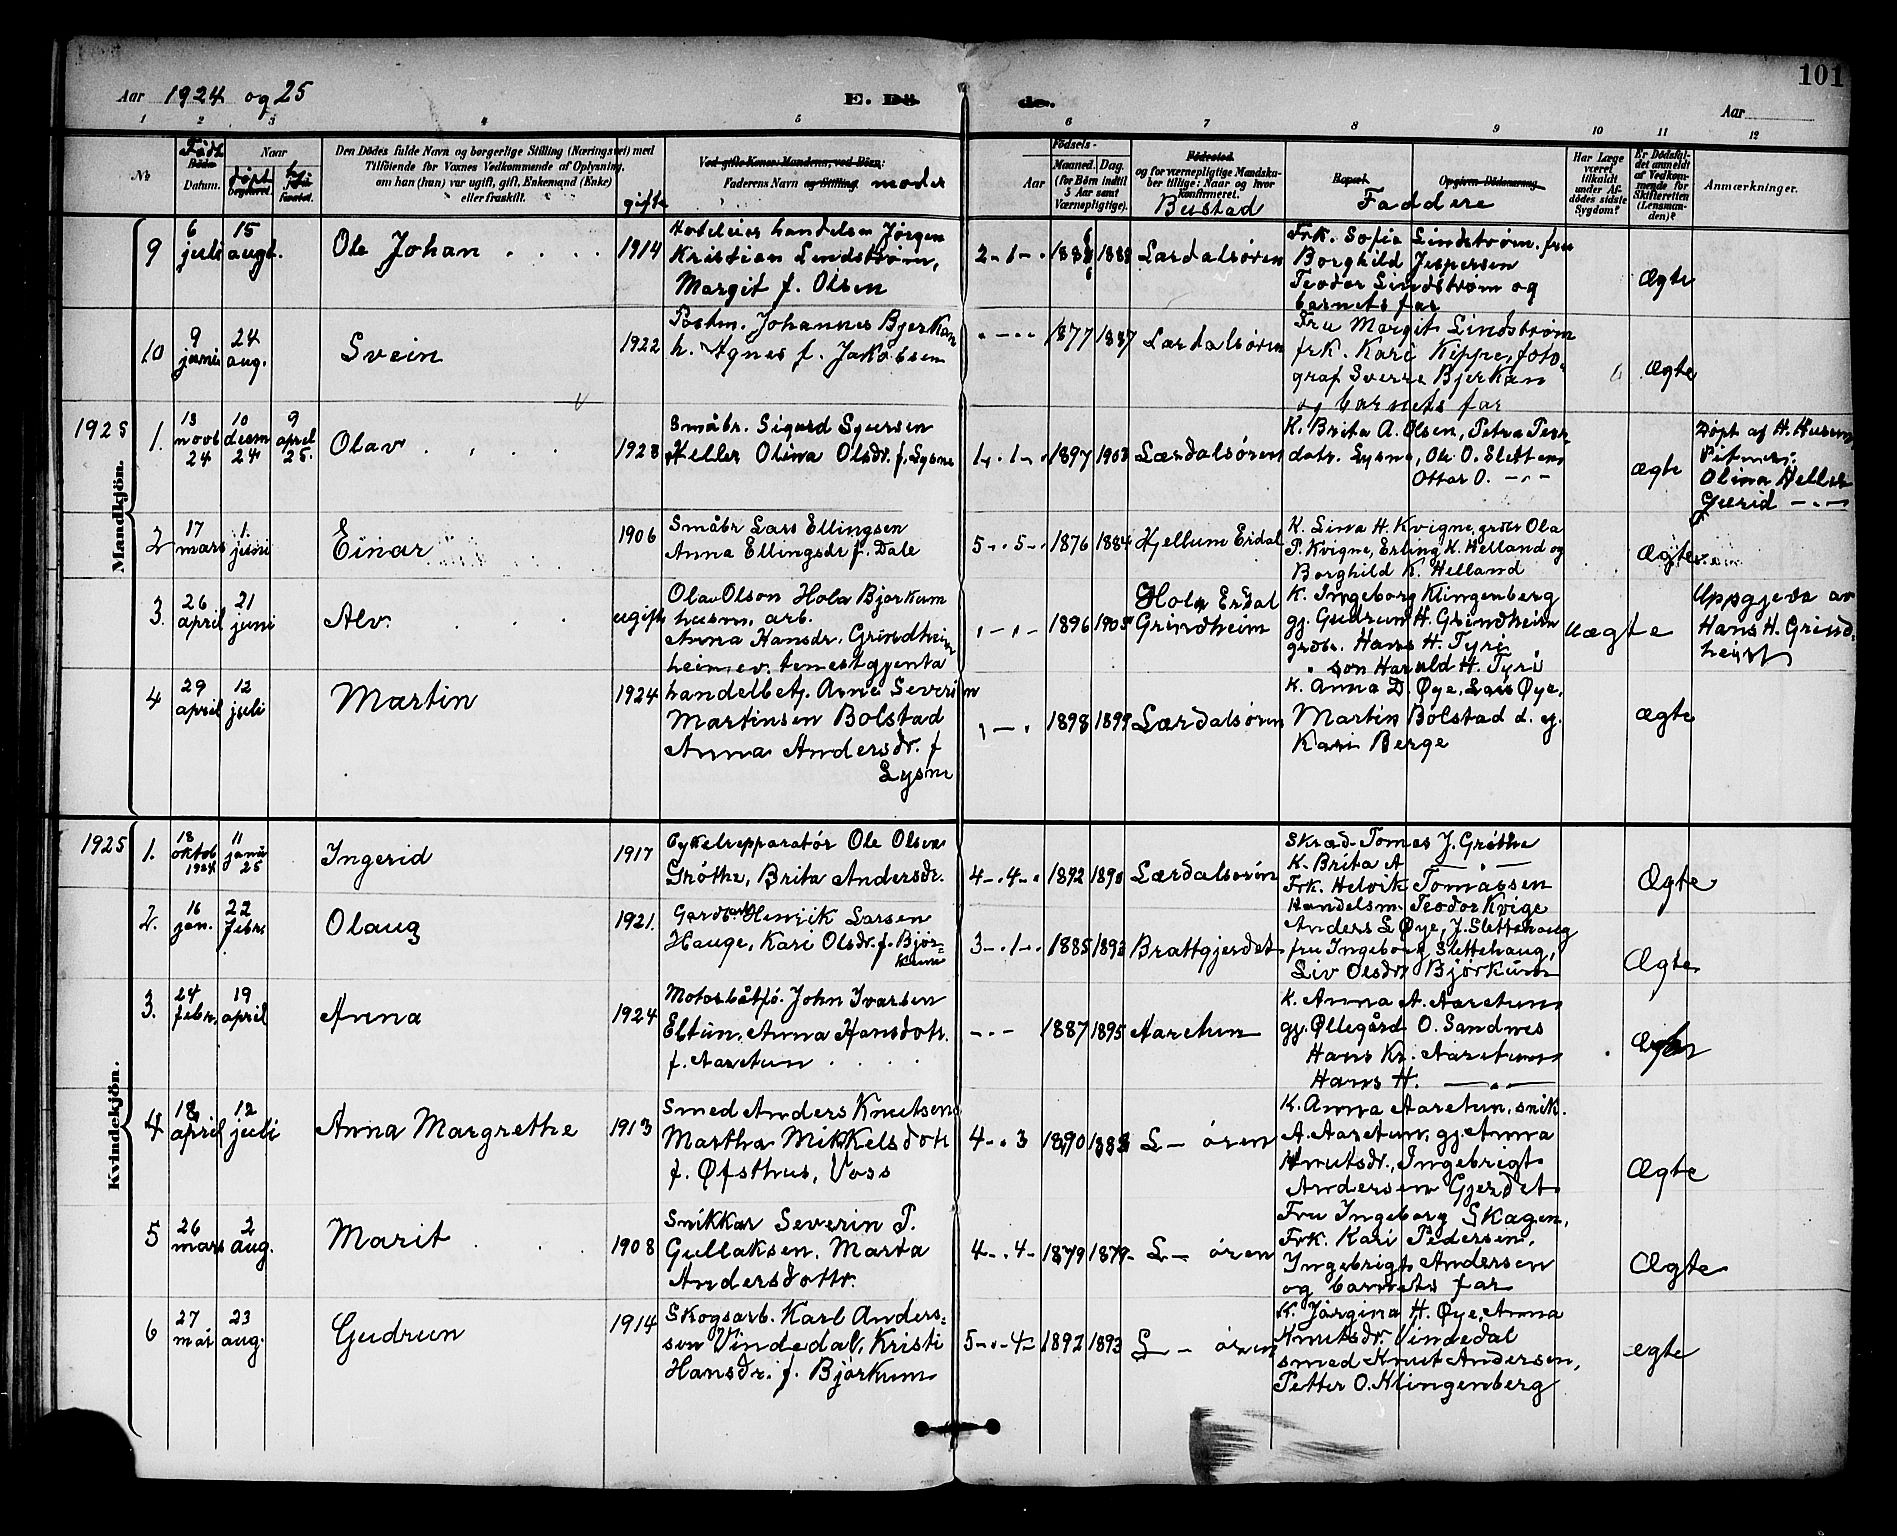 Aar 1924 og 25
E. Döde.
101
Aar
1 2 3 4 5 6 7 8 9 10 11 12
No
Født
Döds-
Datum.
Naar
døpt
begravet.
Den Dødes fulde Navn og borgerlige Stilling (Næringsvei) med
Tilföiende for Voxnes Vedkommende af Oplysning,
om han (hun) var ugift, gift, Enkemand (Enke)
eller fraskilt.
gifte
Ved gifte Koner: Mandens, ved Börn:
Faderens Navn og Stilling. moder
Aar
Födsels-
Maaned. Dag.
(for Börn indtil
5 Aar samt
Værnepligtige).
Födested
og for værnepligtige Mandska-
ber tillige: Naar og hvor
konfirmeret.
Bustad
Bopæl.
Opgiven Dödsaarsag.
Faddere
Har Læge
været
tilkaldt
under Af-
dödes sidste
Sygdom?
Er Dödsfal-
det anmeldt
af Vedkom-
mende for
Skifteretten
(Lensman-
den)?
Anmærkninger.
Mandkjön.
9 6 juli 15 augt. Ole Johan 1914
Kristian Lindstrøm,
Margit f. Olsen
2-1- 1888 1888 Lærdalsøren
Frk. Sofie Lindstrøm. fru
Borghild Jespersen
Teodor Lindstrøm og
barnets far
Ægte
10 9 juni 24 aug. Svein 1922
Postm. Johannes Bjerkan
h. Agnes f. Jakobsen
1877 1887 Lærdalsøren
Fru Margit Lindstrøm
frk. Kari Kippe, foto-
graf Sverre Bjerkan
og barnets far
Ægte
1925
1. 13 novb 24 10 desm 24 9 april 25. Olav 1923
Småbr. Sigurd Sjursen
Heller Olina Olsdr. f. Lysne
1-.1- 1897 1903 Lærdalsøren
K. Brita A. Olsen, Petra Petr
datr. Lysne, Ole O. Sletten
Ottar O. -"-
ægte
Døpt af H. Husum
Olina Heller
2 17 mars 1 juni Einar 1906
Småbr Lars Ellingsen
Anna Ellingsdr f. Dale
5-.5- 1876 1884 Hjellum Erdal
K. Lina H. Kvigne, grdbr Ola
P. Kvigne, Erling K. Helland og
Borghild K. Helland
Ægte
3. 26 april 21 juni Alv. ugifte
Olav Olson Hola Bjørkum
husm, arb.
Anna Hansdr. Grindheim
heimev. tenestgjenta
1896 1905 Hola Erdal
Grindheim
K. Ingeborg Klingenberg
gj. Gudrun H. Grindheim
grdbr. Hans H. Tyri
" son Harald H. Tyri
uægte
Uppgjeve av
Hans H. Grind-
heim
4 29 april 12 juli Martin 1924
handelbetj. Arne Severin
Martinsen Bolstad
Anna Andersdr. f
Lysne
1898 1899 Lærdalsøren
K. Anna D. Øye, Lars Øye,
Martin Bolstad d. y.
Kari Berge
ægte
Kvindekjön.
1925
1. 18 oktob 1924 11 janu 25 Ingerid 1917
Cykelrepparatør Ole Olsen
Grøthe, Brita Andersdr.
4-.4- 1892 1890 Lærdalsøren
Skræd. Tomas J. Grøthe
K. Brita A -"-
Frk. Helvik Tomassen
Handelsm. Teodor Kvige
Ægte
2. 16 jan. 22 febr. Olaug 1921.
Gardbruk Henrik Larsen
Hauge, Kari Olsdr. f. Bjør-
kum
3-.1- 1885 1893 Brattgjerdet
Anders L Øye, J. Slettehaug
fru Ingeborg Slettehaug,
Liv Olsdr Bjørkum
Ægte
3. 24 febr. 19 april Anna 1924
Motorbåtfø. John Ivarsen
Eltun, Anna Hansdotr.
f. Aaretun
1887 1895 Aaretun
K. Anna A. Aaretun
gj. Øllegård O. Sandnes
Hans Kr. Aaretun
Hans H. -"-
4 18 april 12 juli Anna Margrethe 1913
Smed Anders Knutsen
Martha Mikkelsdotr
f. Øfsthus, Voss
4-.3 1890 1888 L- øren
K. Anna Aaretun, snik.
A. Aaretun, gj. Anna
Knutsdr., Ingebrigt
Andersen Gjerdet
Ægte
5 26 mars 2 aug. Marit 1908
Snikkar Severin P.
Gullaksen, Marta
Andersdottr.
4-.4- 1879 1879- L- øren
Fru Ingeborg Skagen,
Frk. Kari Pedersen,
Ingebrigt Andersen
og barnets far
Ægte
6 27 mai 23 aug. Gudrun 1914
Skogsarb. Karl Anders-
sen Vindedal, Kristi
Hansdr. f. Bjørkum
5-.4- 1892 1893 L- øren
K. Jørgina H. Øye, Anna
Knutsdr. Vindedal
smed Knut Andersen,
Petter O. Klingenberg
egte